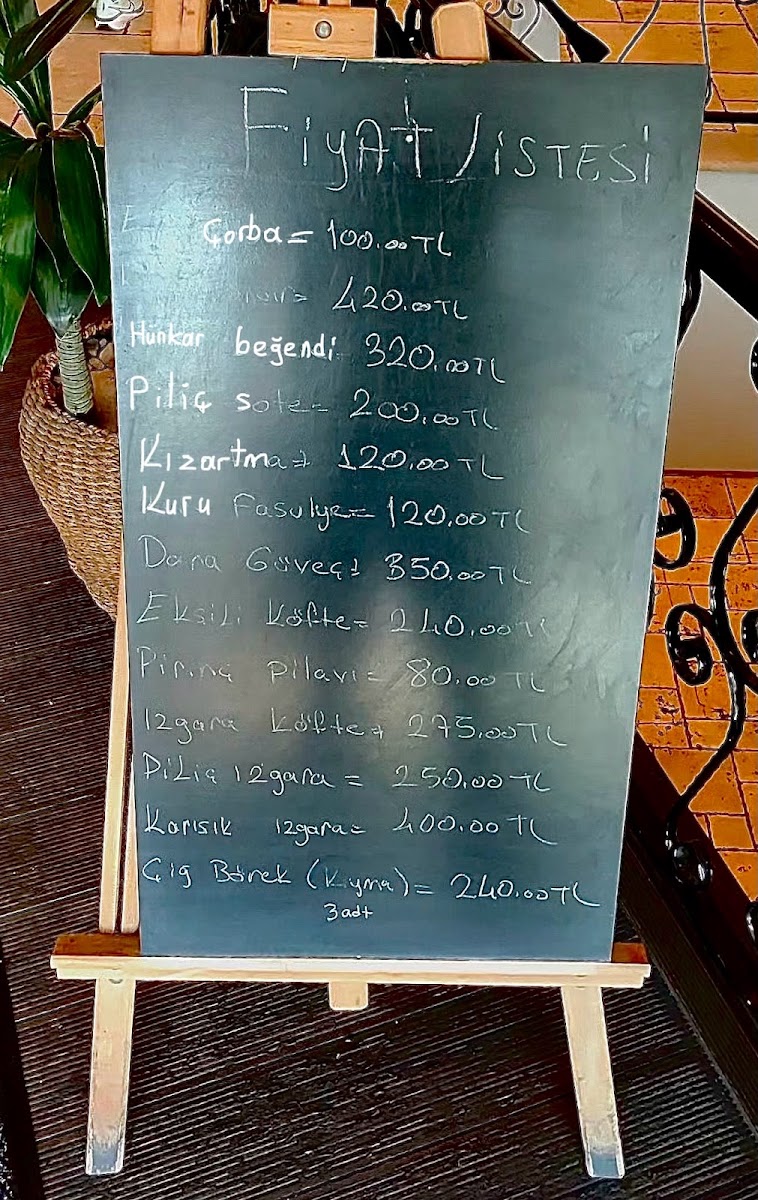 FiyAt LiSTESi
Çorba = 100.00 TL
= 420.00 TL
Hünkar beğendi 320.00 TL
Piliç sote = 200.00 TL
Kızartma = 120.00 TL
Kuru Fasulye = 120.00 TL
Dana Güveç = 350.00 TL
Ekşili Köfte = 240.00 TL
Pirinç pilavı = 80.00 TL
Izgara Köfte = 275.00 TL
Piliç ızgara = 250.00 TL
Karısık ızgara = 400.00 TL
Çig Börek (Kıyma) = 240.00 TL
3 adt